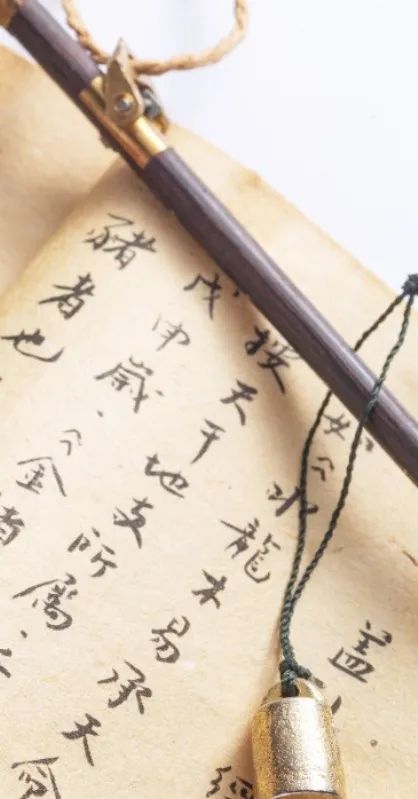 蓋
《水龍木易承天
按天干地支所屬
戊申歲《金者
豬者也